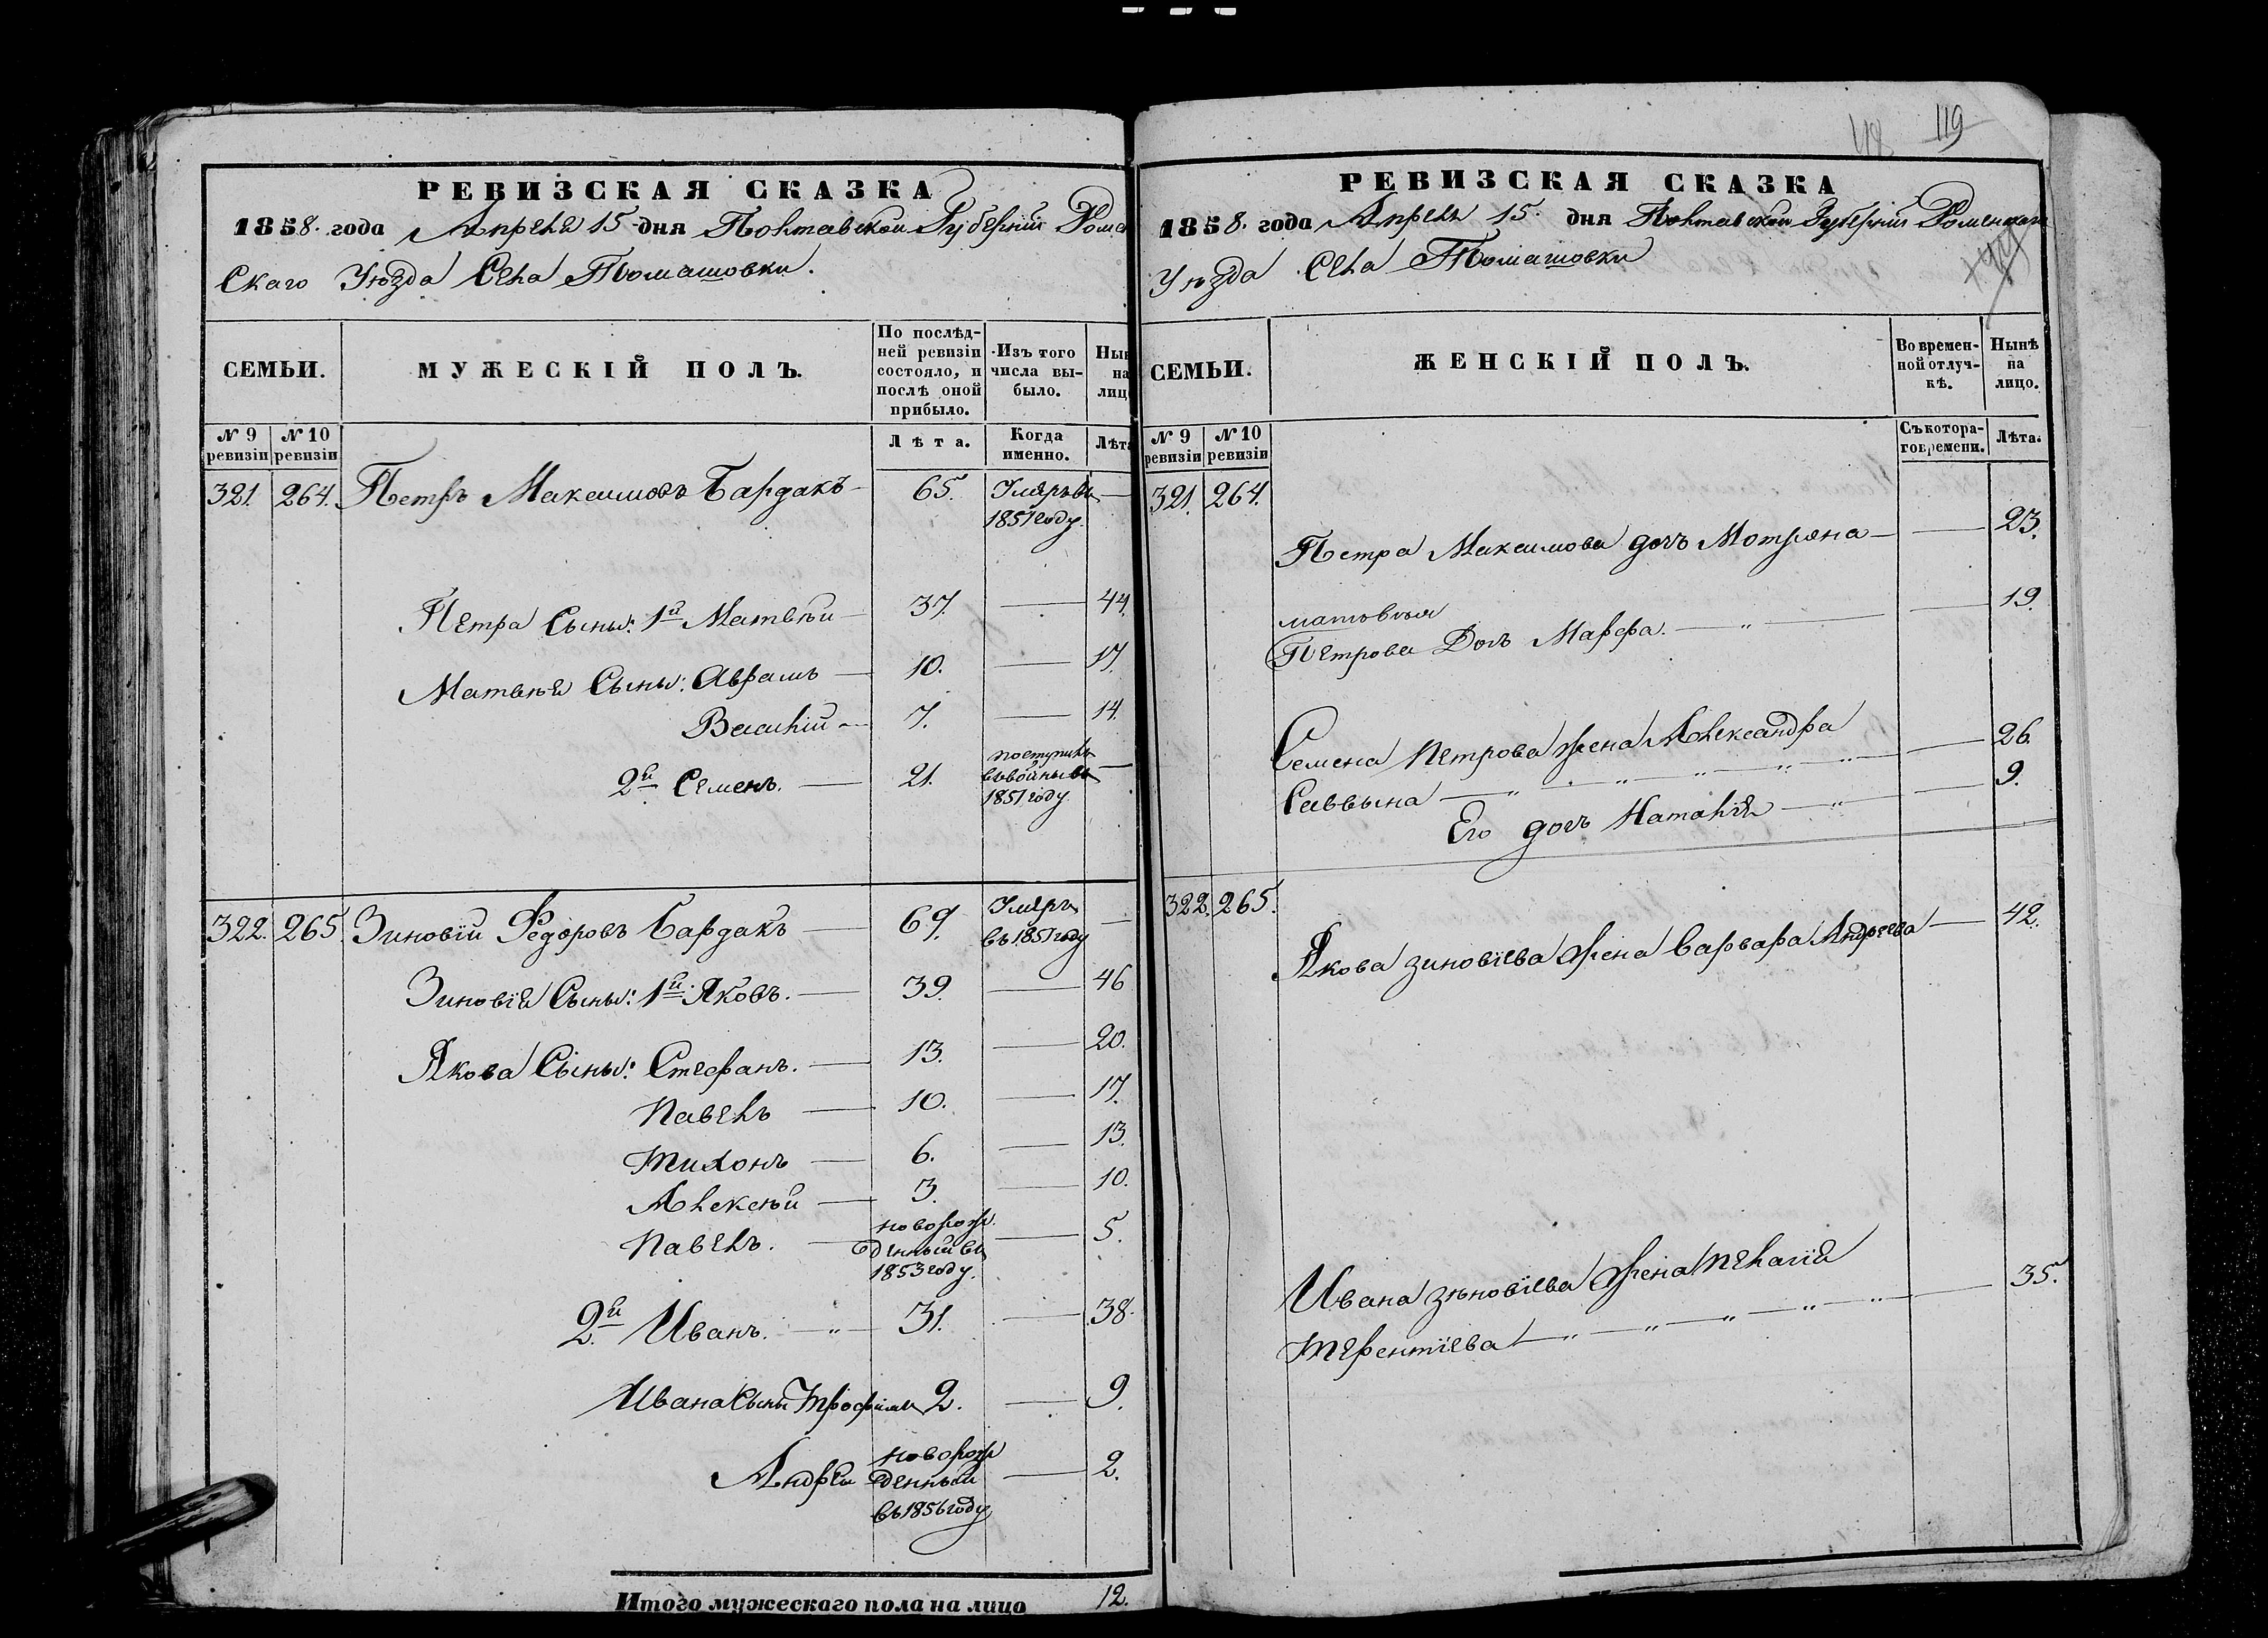 РЕВИЗСКАЯ СКАЗКА
1858. года Апреля 15 дня Полтавской Губерніи Роме
Скаго Уѣзда Села Томашовки.
СЕМЬИ.
МУЖЕСКІЙ ПОЛЪ.
По послѣд-
ней ревизіи
состояло, и
послѣ оной
прибыло.
Изъ того
числа вы-
было.
Нын
на
лиц
№ 9
ревизіи
№ 10
ревизіи
Лѣта.
Когда
именно.
Лѣта
321. 264. Петръ Максимовъ Бардакъ — 65. Умеръ въ —
1851 году.
Петра Сыны: 1й Матвѣй — 37. — 44.
Матвѣя Сыны: Аврамъ — 10. — 17.
Василій — 7. — 14.
2й Семенъ. — 21. поступилъ —
въ войны въ
1851 году
322. 265. Зиновій Федоровъ Бардакъ — 69. Умеръ —
въ 1851 году
Зиновія Сыны: 1й Яковъ. — 39. — 46
Якова Сыны: Стефанъ. — 13. — 20.
Павелъ — 10. — 17.
Тихонъ — 6. — 13.
Алексѣй — 3. — 10.
Павелъ. — новорож — 5.
денный въ
1853 году.
2й Иванъ. — „ — 31. — 38.
Ивана Сыны Трофимъ 2. — 9.
Андрей новорож — 2.
денный
въ 1856 году
Итого мужескаго пола на лицо 12.
119
РЕВИЗСКАЯ СКАЗКА
1858. года Апреля 15. дня Полтавской Губерніи Роменскаго
Уѣзда Села Томашовки
СЕМЬИ.
ЖЕНСКІЙ ПОЛЪ.
Во времен-
ной отлуч-
кѣ.
Нынѣ
на
лицо.
№ 9
ревизіи
№ 10
ревизіи
Съ котора-
го времени.
Лѣта.
321. 264.
Петра Максимова дочь Мотряна — — 23.
матвѣя
Петрова Дочь Марфа. — „ — — 19.
Семена Петрова жена Александра
Саввына — „ — „ — „ — „ — „ — 26.
Его дочь Наталія — „ — — 9.
322. 265.
Якова зиновіева жена Варвара Андреева — 42.
Ивана зѣновіева жена Пелагія
Терентіева — „ — „ — „ — „ — „ — 35.